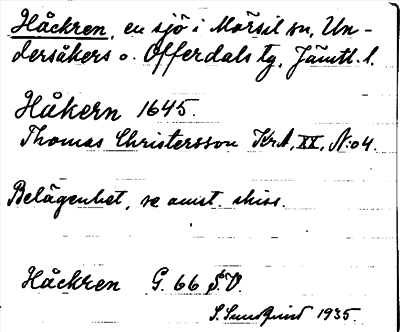 Håckren, en sjö i Mörsil sn, Un-
dersåkers o. Offerdals tg, Jämtl. l.
Håkern 1645.
Thomas Christersson KrA, XX, N:o 4.
Belägenhet, se omst. skiss.
Håckren G. 66 S.V.
S. Sundquist 1935.